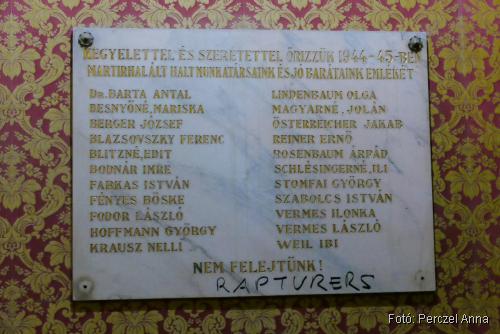 KEGYELETTEL ÉS SZERETETTEL ŐRIZZÜK 1944-45-BEN
MÁRTIRHALÁLT HALT MUNKATÁRSAINK ÉS JÓ BARÁTAINK EMLÉKÉT
DR. BARTA ANTAL
BESNYŐNÉ, MARISKA
BERGER JÓZSEF
BLAZSOVSZKY FERENC
BLITZNÉ, EDIT
BODNÁR IMRE
FARKAS ISTVÁN
FÉNYES BÖSKE
FODOR LÁSZLÓ
HOFFMANN GYÖRGY
KRAUSZ NELLI
LINDENBAUM OLGA
MAGYARNÉ, JOLÁN
ÖSTERREICHER JAKAB
REINER ERNŐ
ROSENBAUM ÁRPÁD
SCHLÉSINGERNÉ, ILI
STOMFAI GYÖRGY
SZABOLCS ISTVÁN
VERMES ILONKA
VERMES LÁSZLÓ
WEIL IBI
NEM FELEJTÜNK!
RAPTURERS
Fotó: Perczel Anna